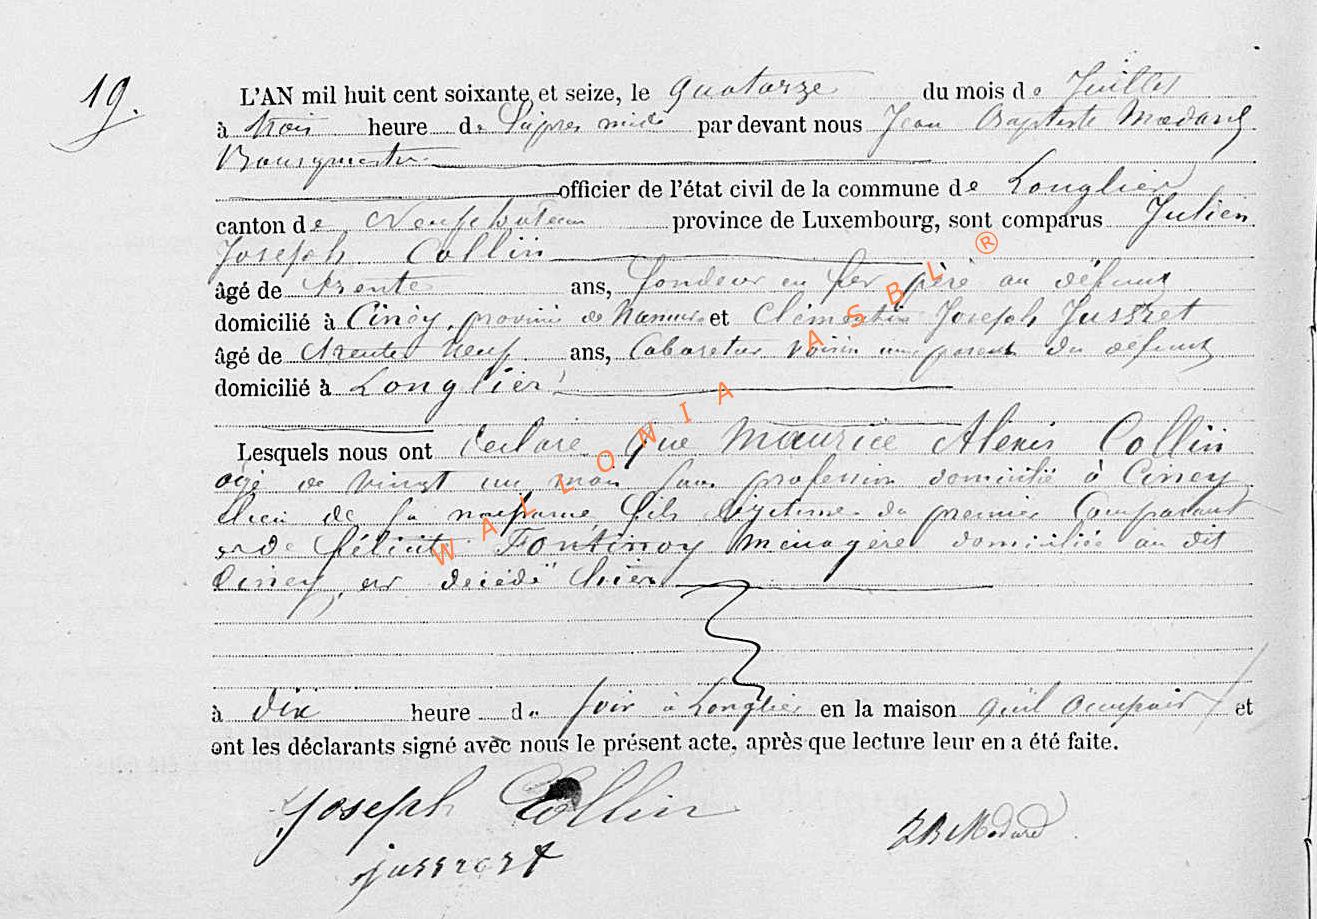 19.
L'AN mil huit cent soixante et seize, le quatorze du mois de Juillet
à trois heure de l'après midi par devant nous Jean Baptiste Medard
Bourgmestre
officier de l'état civil de la commune de Longlier
canton de Neufchateau province de Luxembourg, sont comparus Julien
Joseph Collin
âgé de trente ans, fondeur en fer père au défunt
domicilié à Ciney, province de Namur et Clémentin Joseph Jusseret
âgé de trente neuf ans, Cabaretier voisin non parent du défunt
domicilié à Longlier
Lesquels nous ont déclaré que Maurice Alexis Collin
âgé de vingt un mois sans profession domicilié à Ciney
lieu de sa naissance, fils légitime du premier Comparant
et de Félicité Fontinoy ménagère domiciliée au dit
Ciney, est décédé hier
à dix heure du soir à Longlier en la maison qu'il occupait et
ont les déclarants signé avec nous le présent acte, après que lecture leur en a été faite.
Joseph Collin
JB Medard
jusseret
WALLONIA ASBL ®